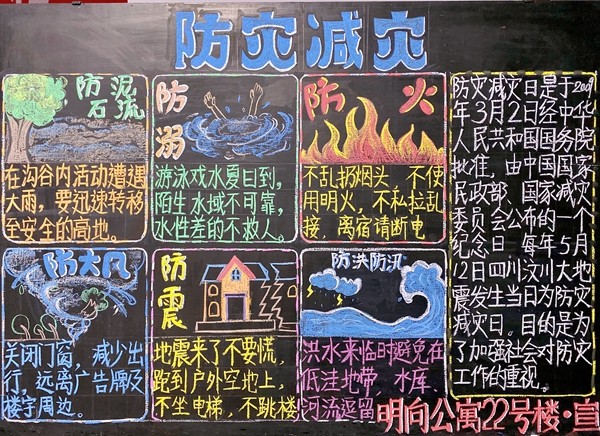 防灾减灾
防泥
石流
在沟谷内活动遭遇
大雨，要迅速转移
至安全的高地。
防
溺
游泳戏水夏日到，
陌生水域不可靠，
水性差的不救人。
防火
不乱扔烟头 不使
用明火，不私拉乱
接，离宿请断电
防大风
关闭门窗，减少出
行，远离广告牌及
楼宇周边。
防
震
地震来了不要慌，
跑到户外空地上，
不坐电梯，不跳楼
防洪防汛
洪水来临时避免在
低洼地带，水库、
河流逗留
防灾减灾日是于2009
年3月2日经中华
人民共和国国务院
批准，由中国国家
民政部、国家减灾
委员会公布的一个
纪念日 每年5月
12日四川汶川大地
震发生当日为防灾
减灾日。目的是为
了加强社会对防灾
工作的重视。
明向公寓22号楼·宣